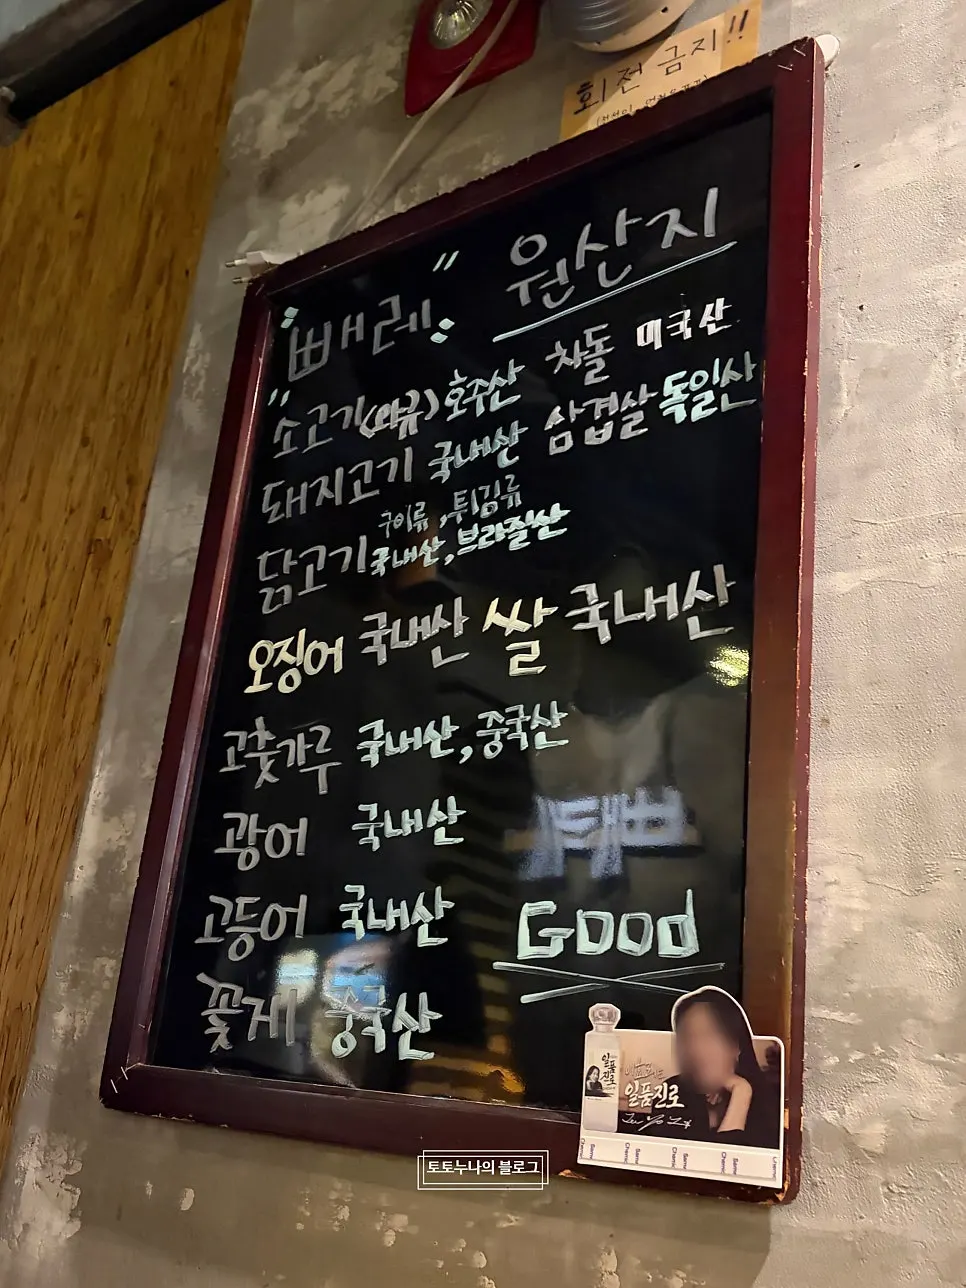 회전 금지!!
"빼레" 원산지
소고기(와규) 호주산 차돌 미국산
돼지고기 국내산 삼겹살 독일산
구이류, 튀김류
닭고기 국내산, 브라질산
오징어 국내산 쌀 국내산
고춧가루 국내산, 중국산
광어 국내산
고등어 국내산 Good
꽃게 중국산
일품진로
일품진로
토토누나의 블로그